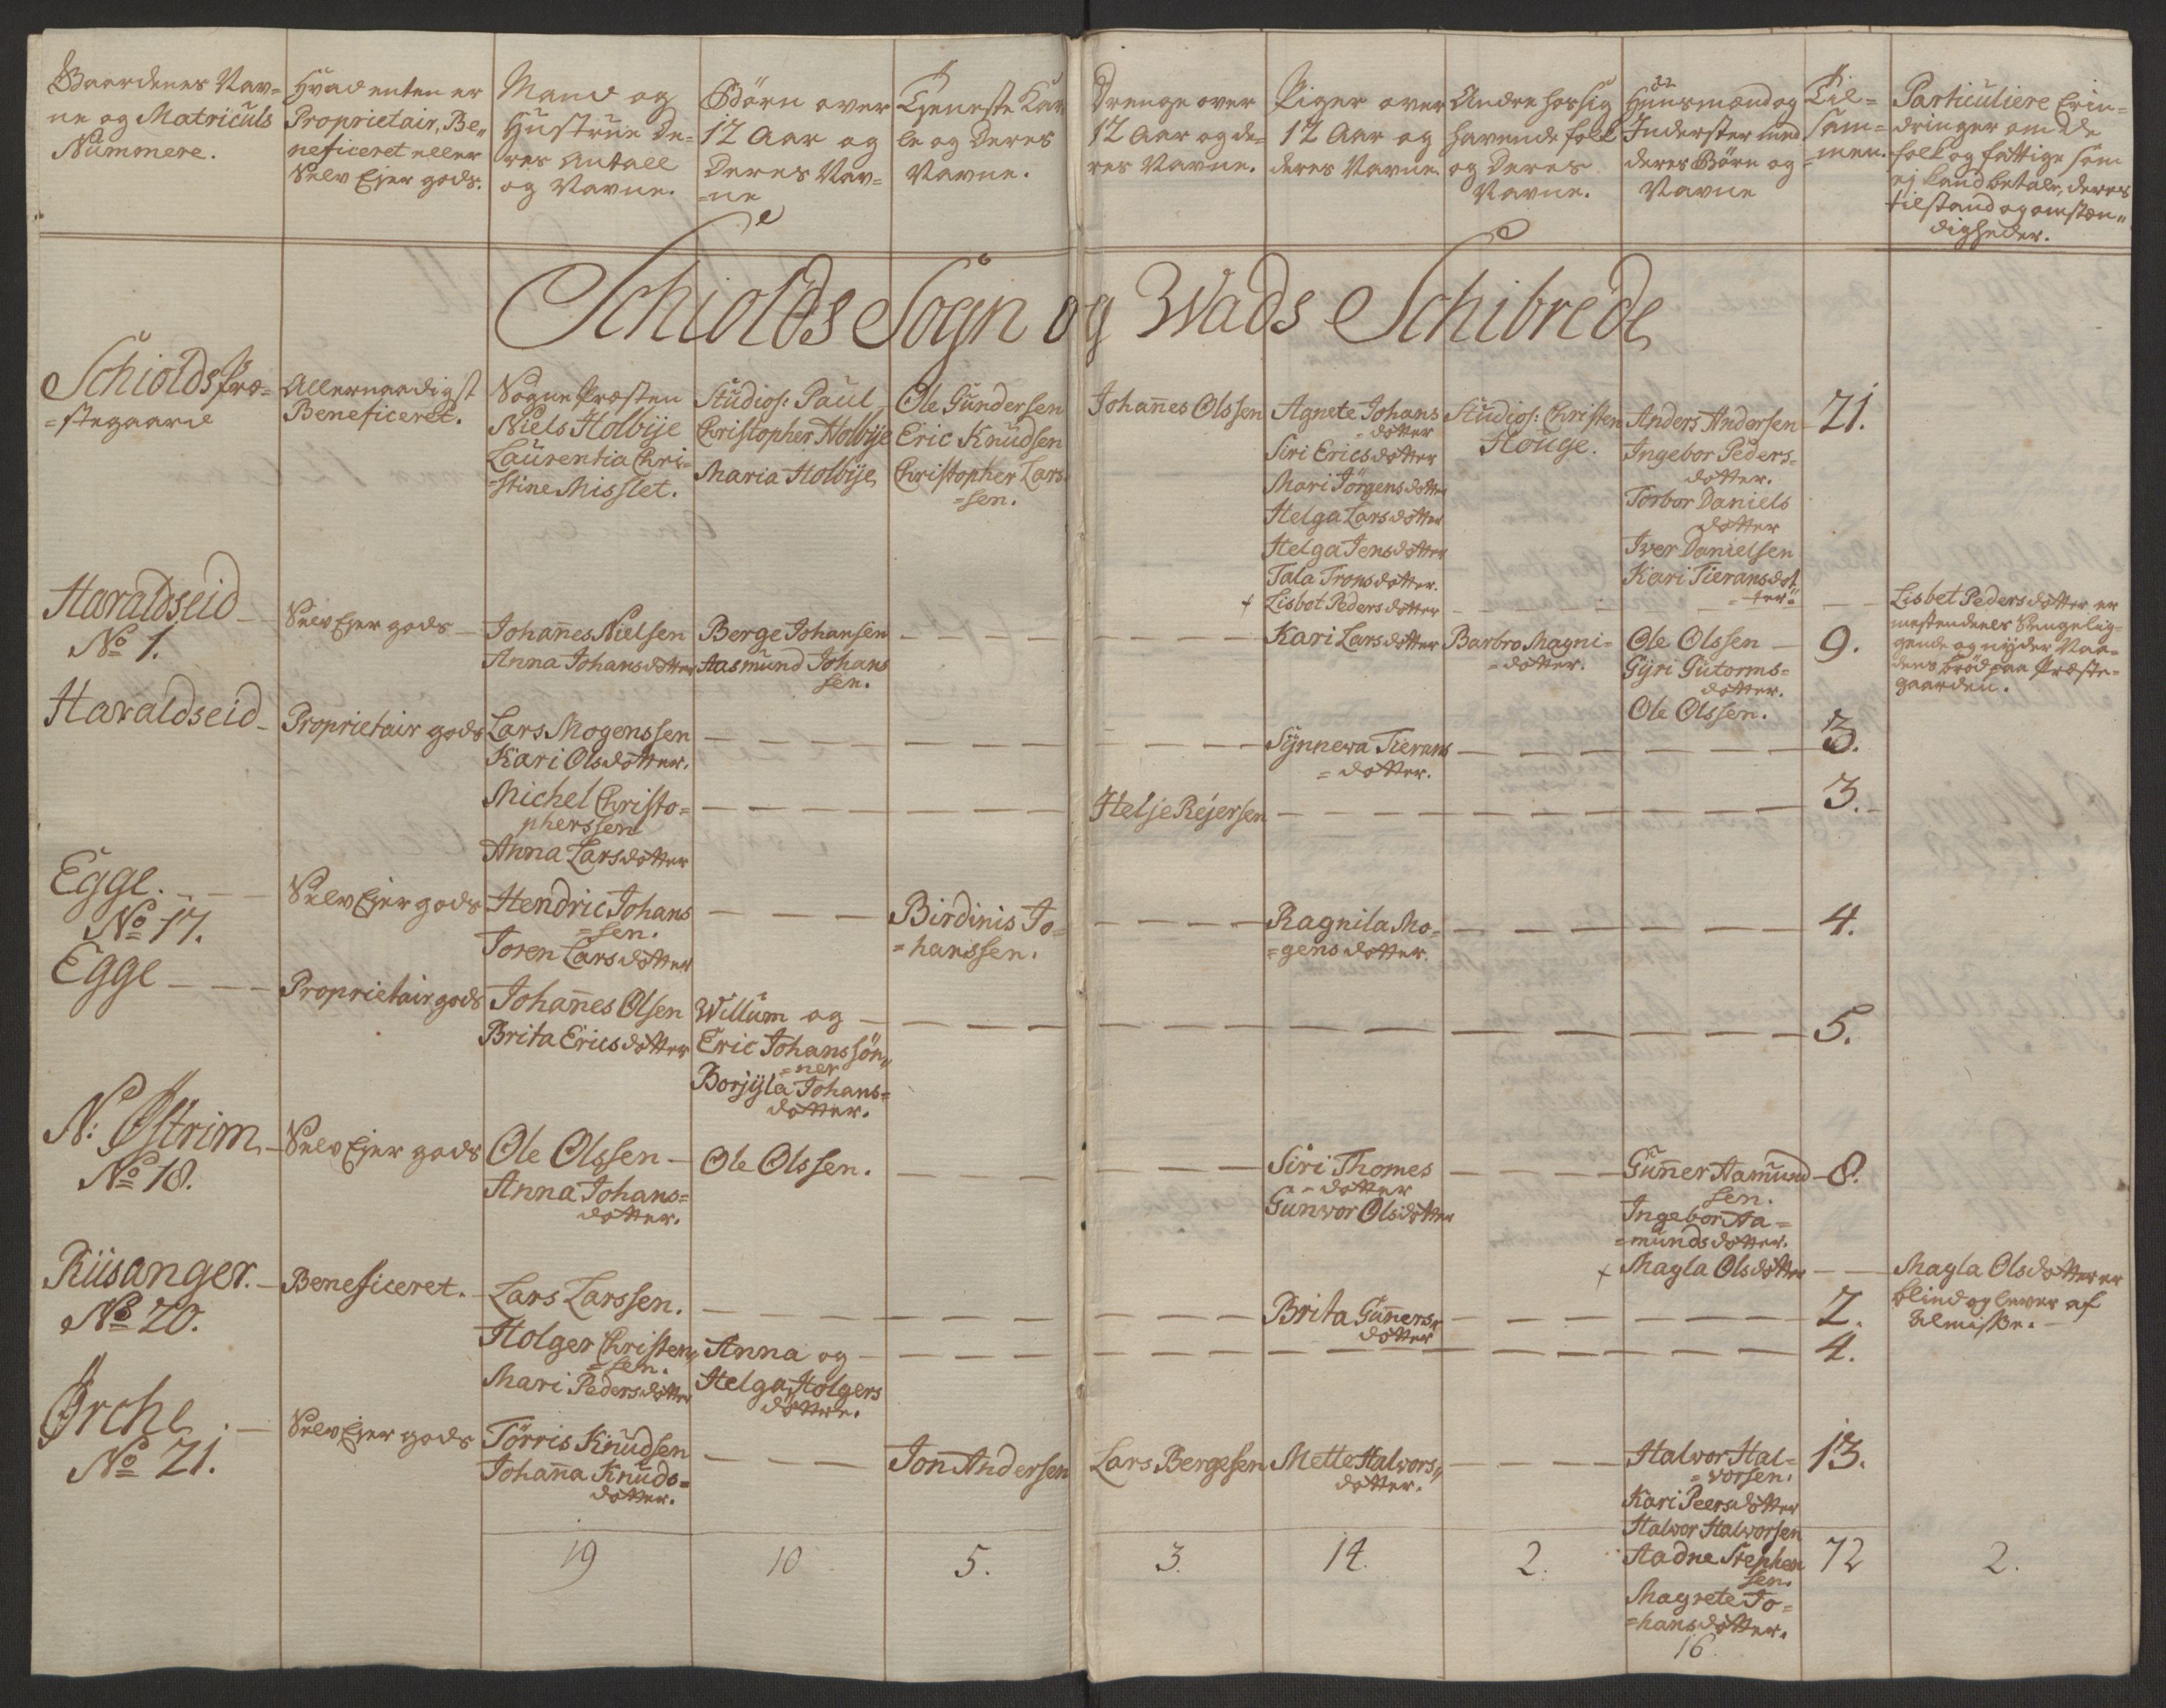 Gaardenes Nav=
ne og Matriculs
Nummere.
Hvad enten er
Proprietair, Be„
neficeret eller
Selv Ejer gods.
Mand og
Hustrue De=
res Antall
og Navne.
Börn over
12 Aar og
Deres Nav=
=ne
Tjeneste Kar
le og Deres
Navne.
Drenge over
12 Aar og de=
res Navne.
Piger over
12 Aar og
deres Navne.
Andre hos sig
havende folk
og Deres
Navne.
Huusmænd og
Inderster med
deres Börn og
Navne
Til=
sam=
=men.
Particuliere Erin=
dringer om de
folk og fattige som
ej kand betale, deres
tilstand og omstæn„
digheder.
Schiolds Sogn og Wads Schibrede
Schiolds Præ=
=stegaard
Allernaadigst
Beneficeret.
Sogne Præsten
Niels Holbije
Laurentia Chri=
=stine Misslet.
Studios: Paul
Christopher Holbije
Maria Holbije
Ole Gundersen
Eric Knudsen
Christopher Lars
=sen.
Johan̄es Olssen
Agnete Johans
=dotter
Siri Ericsdotter
Mari Jörgensdotter
Helga Larsdotter
Helga Jensdotter
Tala Tronsdotter.
+ Lisbet Pedersdotter
Studios: Christen
Houge.
Anders Andersen
Ingebor Peders=
dotter.
Torbor Daniels
dotter
Iver Danielsen
Kari Tieransdot
=ter.
21.
Lisbet Pedersdotter er
mestendeels Sengelig=
gende og nyder Naa=
dens bröd paa Præste=
gaarden.
Haraldseid
No 1.
Selv Ejer gods
Johan̄es Nielsen
Anna Johansdotter
Berge Johansen
Aasmund Johans
sen.
Kari Larsdotter
Barbro Magni=
=dotter.
Ole Olssen
Gyri Gutorms=
dotter.
Ole Olssen.
9.
Haraldseid
Proprietair gods
Lars Mogenssen
Kari Olsdotter.
Synnewa Tierans
=dotter.
3.
Michel Christo=
pherssen
Anna Larsdotter
Helje Rejersen
3.
Egge.
No 17.
Selv Ejer gods
Hendric Johans
=sen.
Toren Larsdotter
Birdinis Jo=
=hanssen.
Ragnila Mo=
=gensdotter.
4.
Egge
Proprietair gods
Johan̄es Olsen
Brita Ericsdotter
Willum og
Eric Johanssön„
=ner
Borjyla Johans=
dotter.
5.
N: Østrim
No 18.
Selv Ejer gods
Ole Olssen
Anna Johans=
dotter.
Ole Olssen.
Siri Thomes
=dotter
Gunvor Olsdotter
Gun̄er Aamund
sen.
Ingebor Aa=
=mundsdotter.
+ Magla Olsdotter
8.
Magla Olsdotter er
blind og lever af
Almisse.
Riisanger.
No 20.
Beneficeret.
Lars Larssen.
Brita Gun̄ers„
dotter
2.
Holger Christen„
=sen.
Mari Pedersdotter
Anna og
Helga Holgers
döttre.
4.
Ørche.
No 21.
Selv Ejer gods
Törris Knudsen
Johan̄a Knuds=
dotter.
Jon Andersen
Lars Bergesen
Mette Halvors„
dotter.
Halvor Hal=
=vorsen.
Kari Peersdotter
Halvor Halvorsen
Aadne Stephen
sen.
Magrete Jo=
=hansdotter.
13.
19
10
5.
3.
14.
2.
16.
72
2.